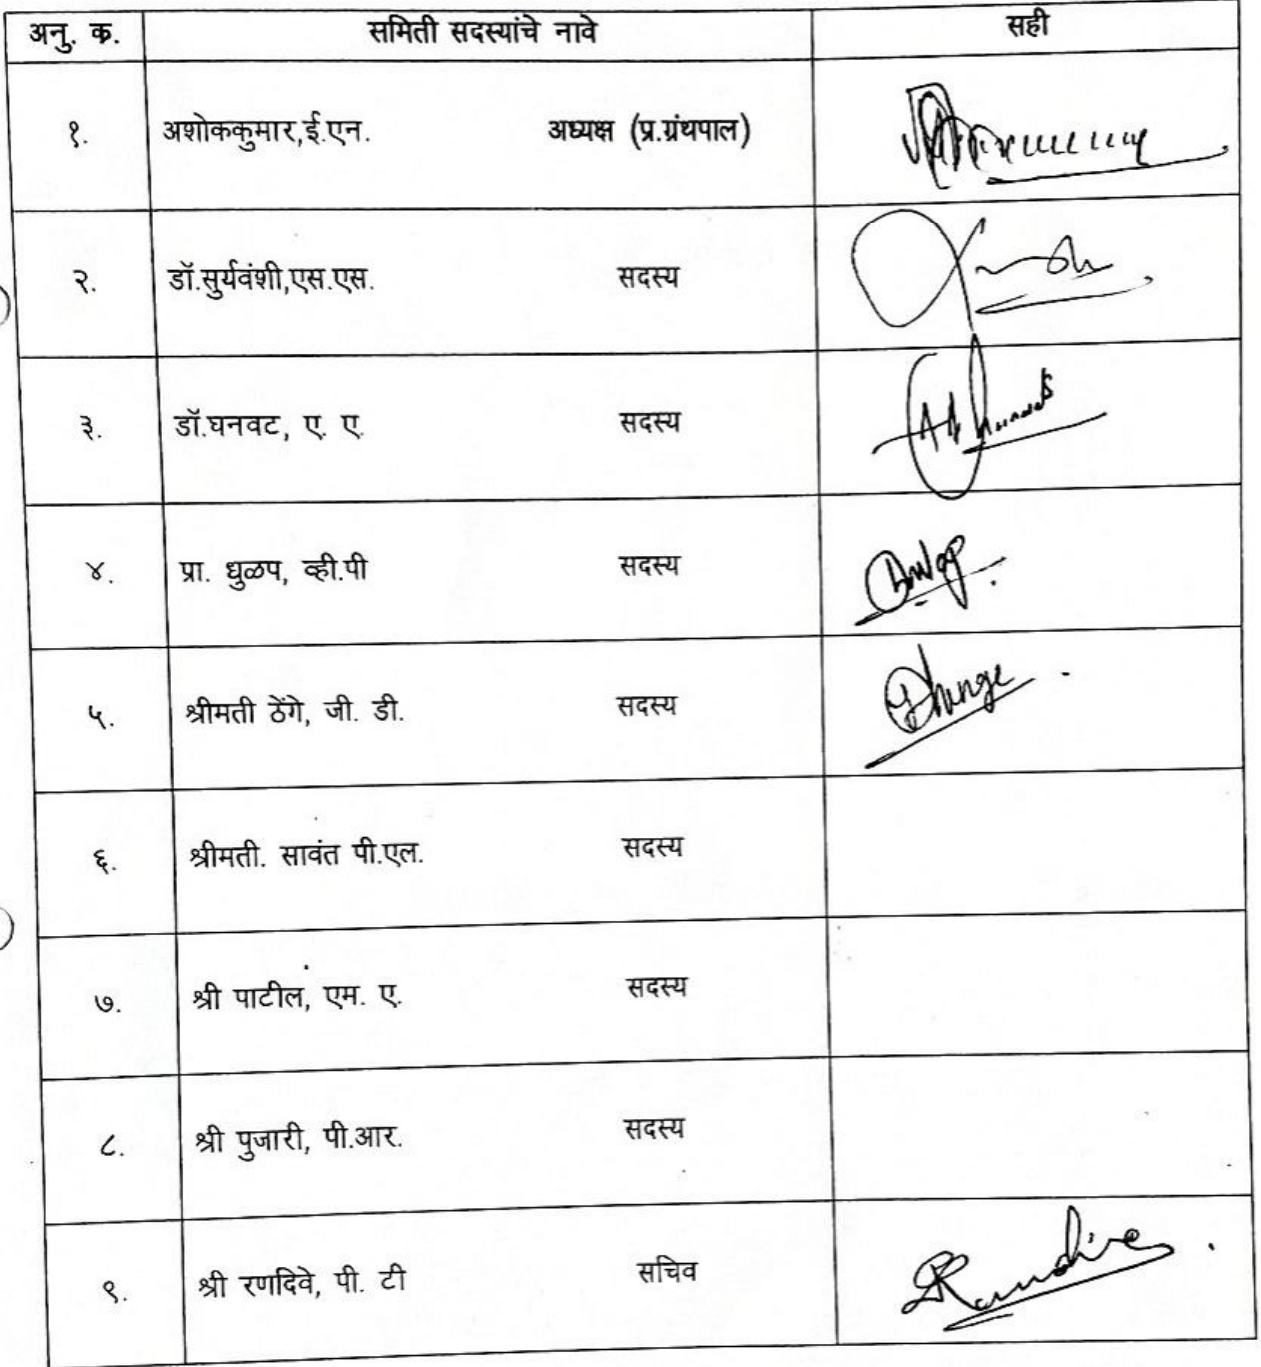 अनु. क. समिती सदस्यांचे नावे सही
१. अशोककुमार,ई.एन. अध्यक्ष (प्र.ग्रंथपाल)
२. डॉ.सुर्यवंशी,एस.एस. सदस्य
३. डॉ.घनवट, ए. ए. सदस्य
४. प्रा. धुळप, व्ही.पी सदस्य
५. श्रीमती ठेंगे, जी. डी. सदस्य
६. श्रीमती. सावंत पी.एल. सदस्य
७. श्री पाटील, एम. ए. सदस्य
८. श्री पुजारी, पी.आर. सदस्य
९. श्री रणदिवे, पी. टी सचिव